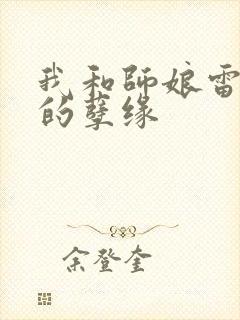 我和師娘雷
的孽缘
余登奎